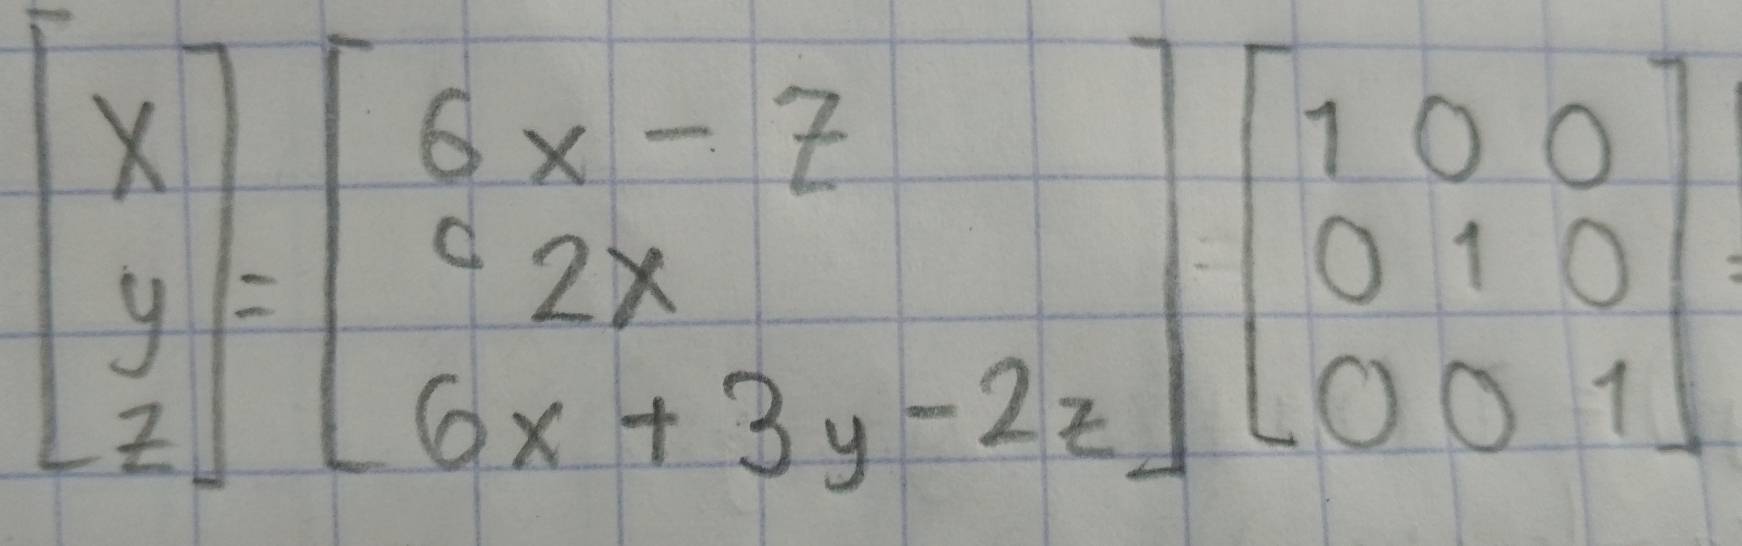 [x y z] = [6x - z
2x
6x + 3y - 2z] = [1 0 0
0 1 0
0 0 1] =